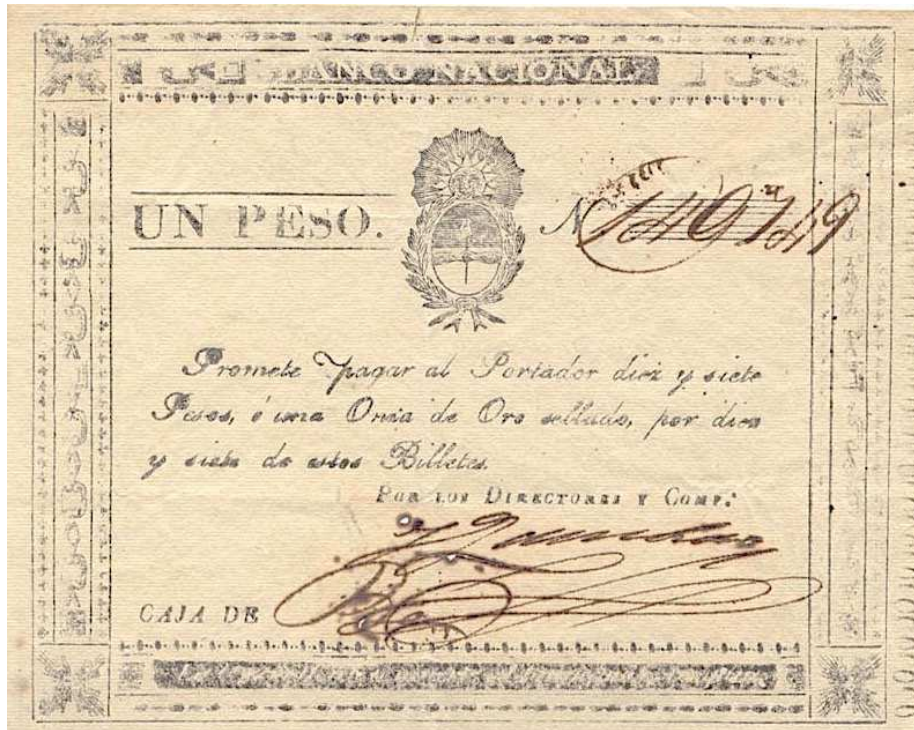 BANCO NACIONAL
UN PESO.
N 149149
Promete pagar al Portador diez y siete
Pesos, ó una Onza de Oro sellado, por diez
y siete de estos Billetes.
POR LOS DIRECTORES Y COMP.ª
CAJA DE